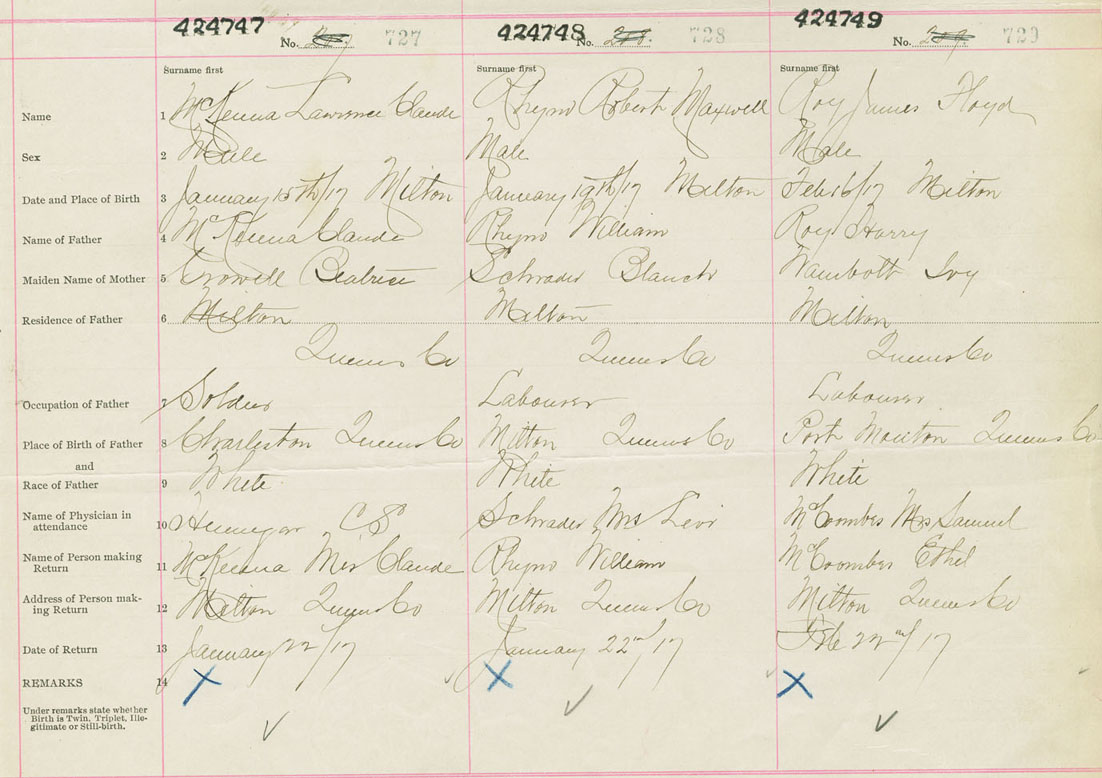 424747 424748 424749
No. 727 No. 728 No. 729
Surname first Surname first Surname first
Name 1 McKenna Lawrence Claude Rhyno Robert Maxwell Roy James Floyd
Sex 2 Male Male Male
Date and Place of Birth 3 January 15th/17 Milton January 19th/17 Milton Feb 16/17 Milton
Name of Father 4 McKenna Claude Rhyno William Roy Harry
Maiden Name of Mother 5 Crowell Beatrice Schrader Blanch Wambolt Ivy
Residence of Father 6 Milton Milton Milton
Queens Co Queens Co Queens Co
Occupation of Father 7 Soldier Labourer Labourer
Place of Birth of Father 8 Charleston Queens Co Milton Queens Co Port Mouton Queens Co
and
Race of Father 9 White White White
Name of Physician in
attendance 10 Hennigar C S Schrader Mrs Levi McCoombes Mrs Samuel
Name of Person making
Return 11 McKenna Mrs Claude Rhyno William McCoombes Ethel
Address of Person mak-
ing Return 12 Milton Queens Co Milton Queens Co Milton Queens Co
Date of Return 13 January 22/17 January 22nd/17 Feb 22nd/17
REMARKS 14 X X X
Under remarks state whether
Birth is Twin, Triplet, Ille-
gitimate or Still-birth.